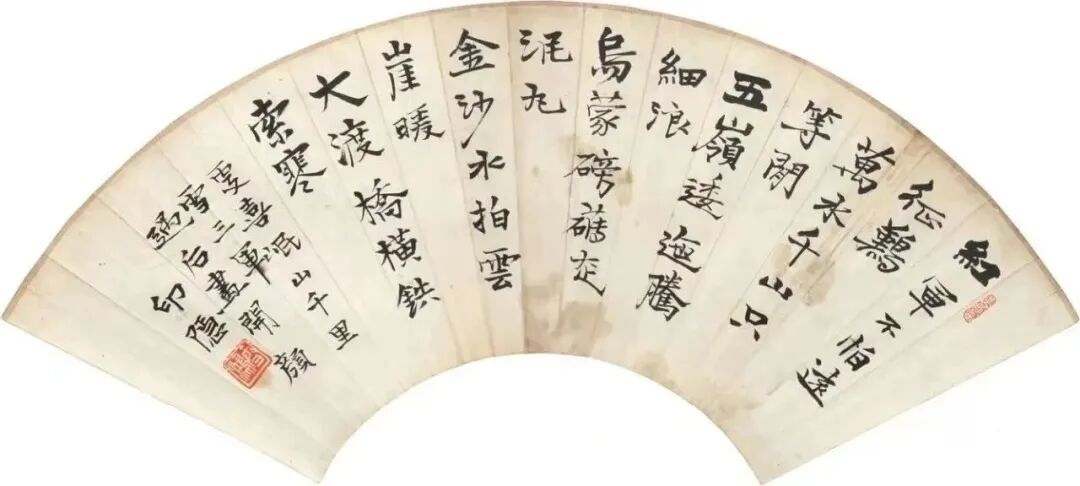 紅軍不怕遠
征難
萬水千山只
等閒
五嶺逶迤騰
細浪
烏蒙磅礴走
泥丸
金沙水拍雲
崖暖
大渡橋橫鉄
索寒
更喜岷山千里
雪三軍
過后盡開顏
印隱